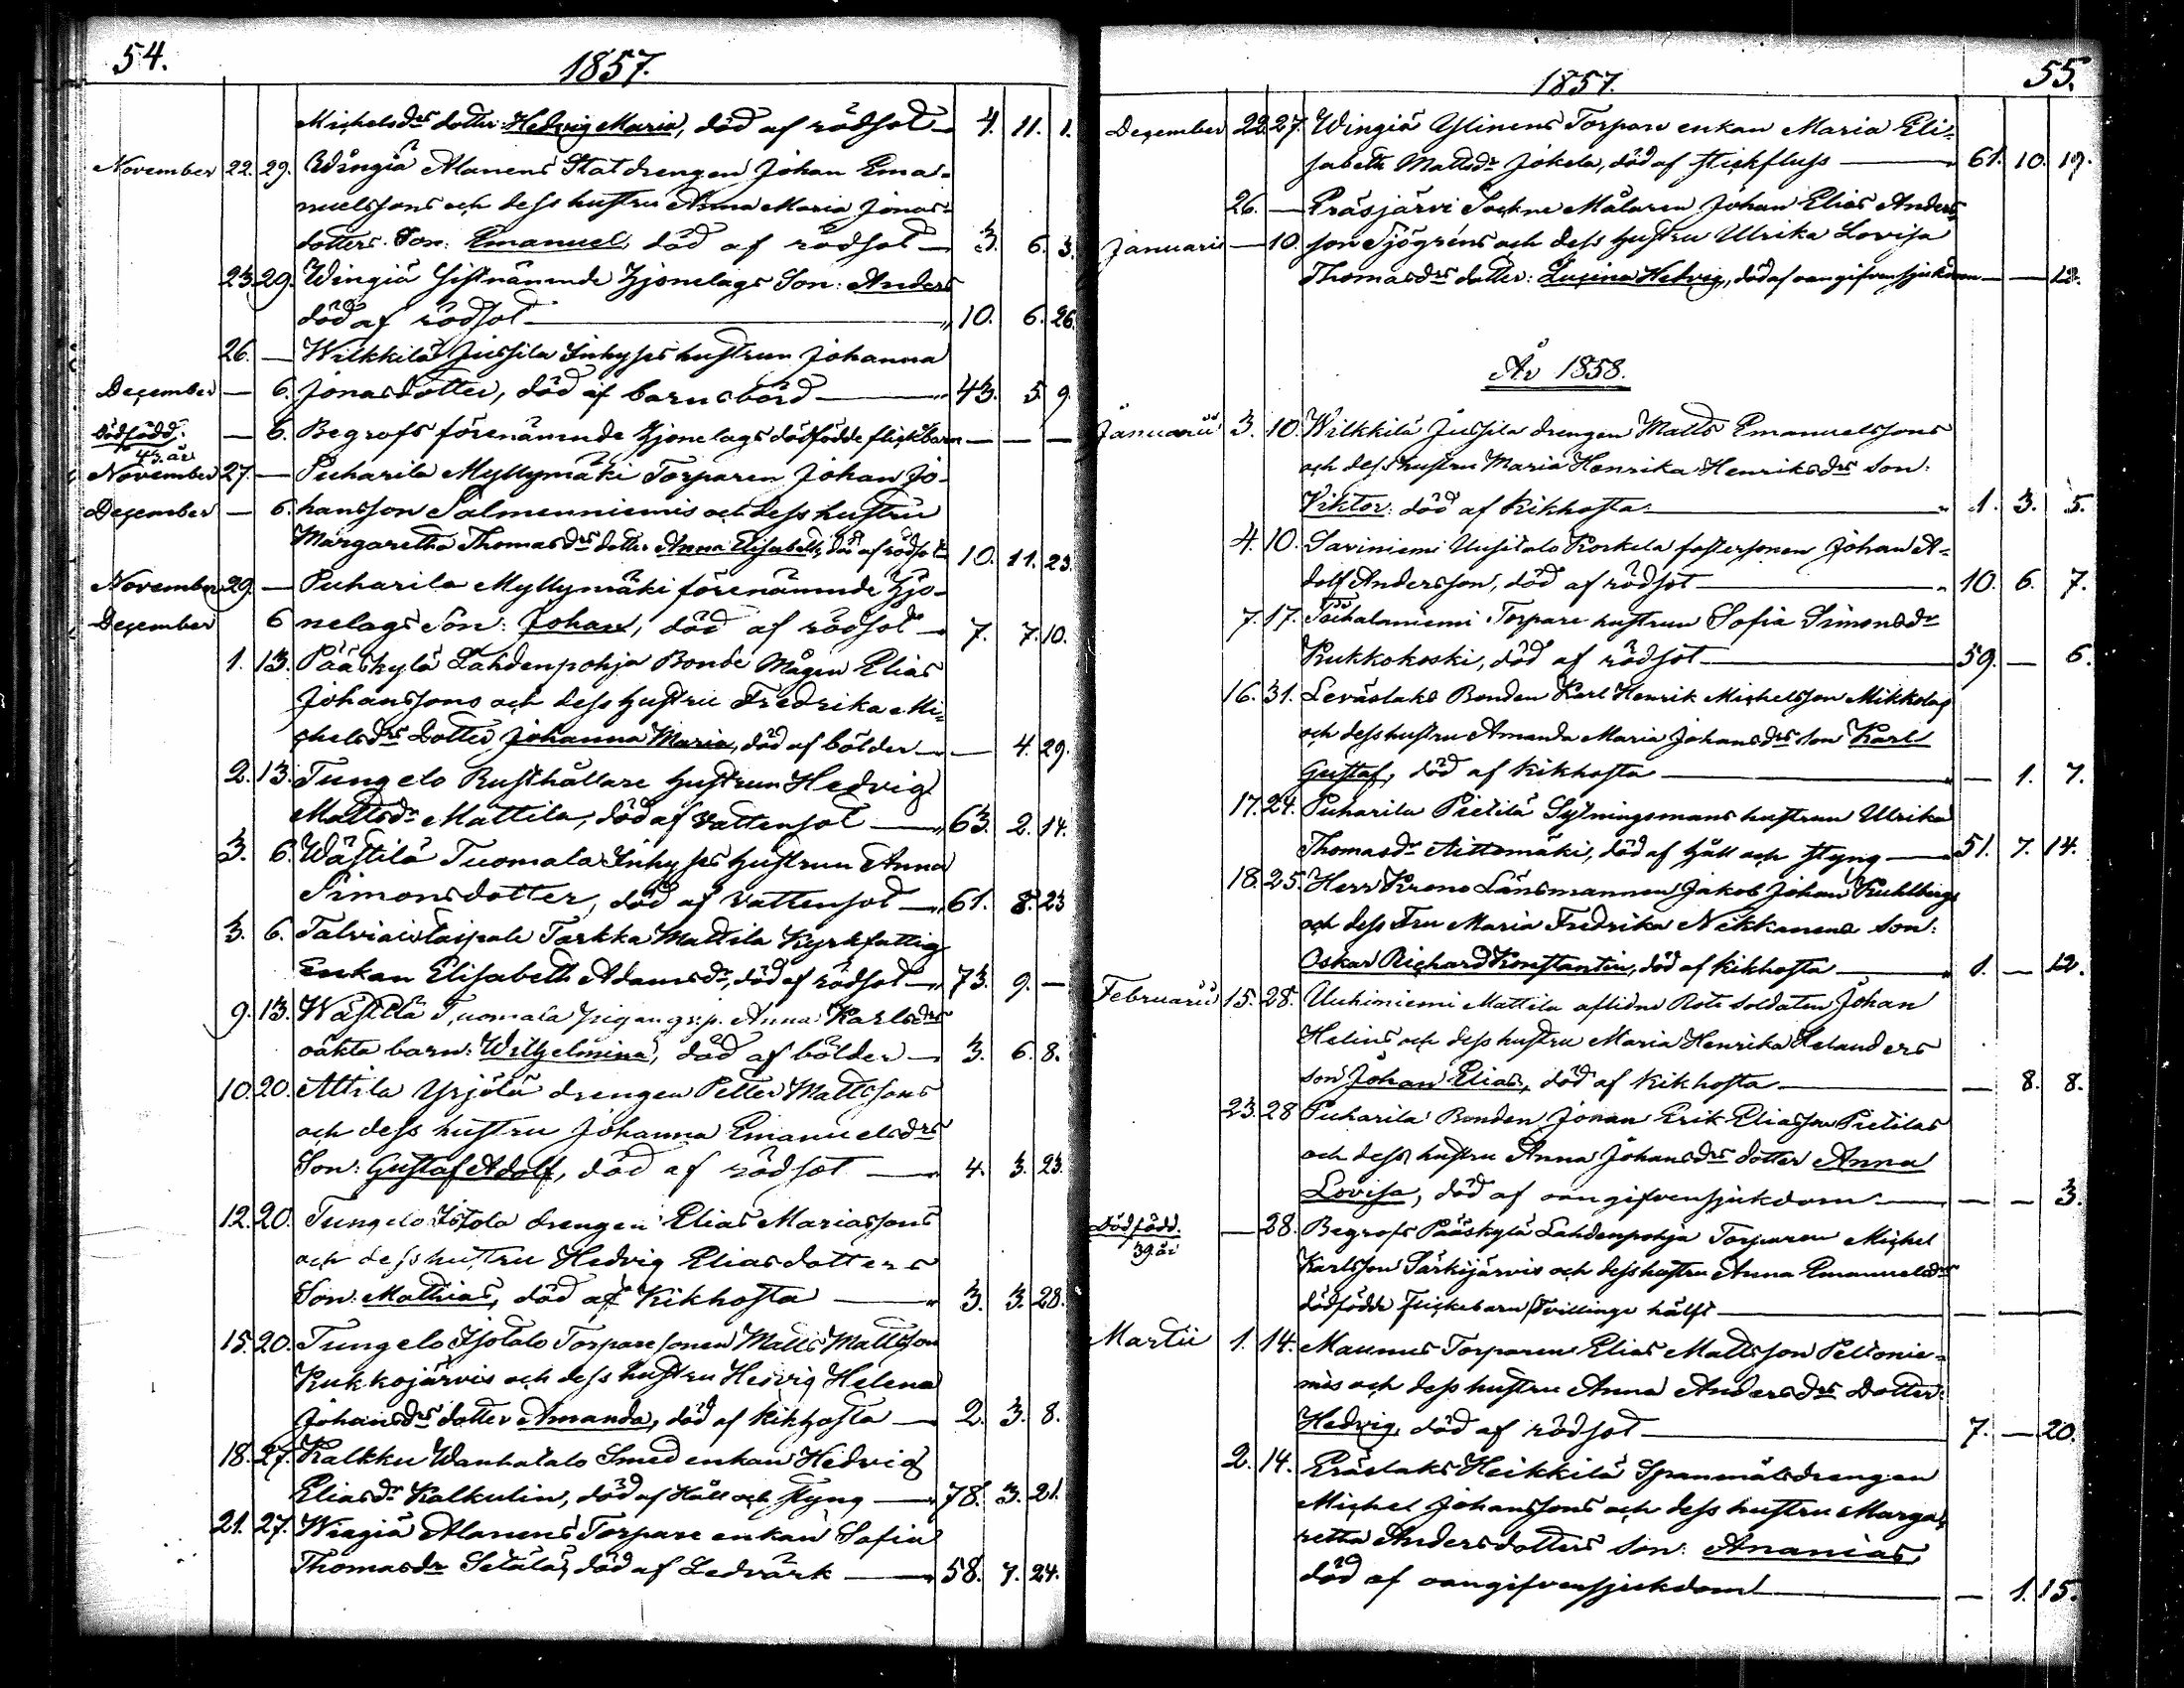 54.
1857.
Michelsdrs dotter: Hedvig Maria, död af rödsot 4. 11. 1.
November 22. 29. Wingiä Alanens Statdrengen Johan Ema-
nuelssons och dess hustru Anna Maria Jonas-
dotters Son: Emanuel död af rödsot 3. 6. 3.
23. 29. Wingiä sistnämnde Hjonelags Son: Anders
död af rödsot 10. 6. 26.
26. — Wilkkilä Jussila Inhyses hustrun Johanna
December — 6. Jonasdotter, död af barnsbörd 43. 5. 9.
dödfödd. — 6. Begrofs förenämnde Hjonelags dödfödde flickbarn — — —
43. år
November 27. — Puharila Myllymäki Torparen Johan Jo-
December — 6. hansson Salmenniemis och dess hustru
Margaretha Thomasdrs dotter Anna Elisabeth, död af rödsot 10. 11. 23.
November 29. — Puharila Myllymäki förenämnde Hjo-
December 6 nelags Son: Johan, död af rödsot 7. 7. 10.
1. 13. Pääskylä Lahdenpohja Bonde Mågen Elias
Johanssons och dess hustru Fredrika Mi-
chelsdrs Dotter Johanna Maria, död af bölder — 4. 29.
2. 13. Tungelo Rusthållare hustrun Hedvig
Mattsdr Mattila, död af Vattensot 63. 2. 14.
3. 6. Wästilä Tuomala Inhyses hustrun Anna
Simonsdotter, död af Vattensot 61. 8. 23
3. 6. Talviaistaipale Tarkka Mattila Kyrkfattig
Enkan Elisabeth Adamsdr, död af rödsot 73. 9. —
9. 13. Wästilä Tuomala pigan Anna Karlsdrs
oäkta barn: Wilhelmina, död af bölder 3. 6. 8.
10. 20. Attila Yrjölä drengen Petter Mattssons
och dess hustru Johanna Emanuelsdrs
Son: Gustaf Adolf, död af rödsot 4. 3. 23.
12. 20. Tungelo Isotalo drengen Elias Mariassons
och dess hustru Hedvig Eliasdotters
Son: Mathias, död af Kikhosta 3. 3. 28.
15. 20. Tungelo Isotalo Torpare sonen Matts Mattsson
Kukkojärvis och dess hustru Hedvig Helena
Johansdrs dotter Amanda, död af Kikhosta 2. 3. 8.
18. 27. Kalkku Wanhatalo Smed enkan Hedvig
Eliasdr Kalkulin, död af Håll och styng 78. 3. 21.
21. 27. Wingiä Alanens Torpare enkan Sofia
Thomasdr Setälä, död af Ledvärk 58. 7. 24.
55.
1857.
December 22. 27. Wingiä Ylinens Torpare enkan Maria Eli-
sabeth Mattsdr Jokela, död af stickfluss 61. 10. 19.
26. — Eräsjärvi Sockne Målaren Johan Elias Anders-
Januarii — 10. son Sjögréns och dess hustru Ulrika Lovisa
Thomasdrs dotter: Lucina Hedvig, död af oangifven sjukdom — — 12.
År 1858.
Januarii 3. 10. Wilkkilä Jussila drengen Matts Emanuelssons
och dess hustru Maria Henrika Henriksdrs son:
Viktor: död af Kikhosta 1. 3. 5.
4. 10. Saviniemi Uusitalo Koskela fostersonen Johan A-
dolf Andersson, död af rödsot 10. 6. 7.
7. 17. Torpare hustrun Sofia Simonsdr
Kukkokoski, död af rödsot 59. — 6.
16. 31. Leväslaks Bonden Karl Henrik Michelsson Mikkolas
och dess hustru Amanda Maria Johansdrs son Karl
Gustaf, död af Kikhosta — 1. 7.
17. 24. Puharila Pietilä Sytningsmans hustrun Ulrika
Thomasdr Aittomäki, död af håll och styng 51. 7. 14.
18. 25. Herr Krono Länsmannen Jakob Johan Kuhlbergs
och dess Fru Maria Fredrika Nikkanens son:
Oskar Richard Konstantin, död af Kikhosta 1. — 12.
Februarii 15. 28. Uuhiniemi Mattila aflidne Rote soldaten Johan
Helins och dess hustru Maria Henrika Helanders
son Johan Elias, död af Kikhosta — 8. 8.
23. 28 Puharila Bonden Johan Erik Eliasson Pietilas
och dess hustru Anna Johansdrs dotter Anna
Lovisa, död af oangifven sjukdom — — 3.
Dödfödd. — 28. Begrofs Pääskylä Lahdenpohja Torparen Michel
39 år
Karlsson Särkijärvis och dess hustru Anna Emanuelsdrs
dödfödde Flickebarn, Tvillings hälft — — —
Martii 1. 14. Maunus Torparen Elias Mattsson Peltonie-
mis och dess hustru Anna Andersdrs Dotter:
Hedvig, död af rödsot 7. — 20.
2. 14. Eräslaks Heikkilä Spanmålsdrengen
Michel Johanssons och dess hustru Marga-
retha Andersdotters son: Ananias
död af oangifven sjukdom — 1. 15.